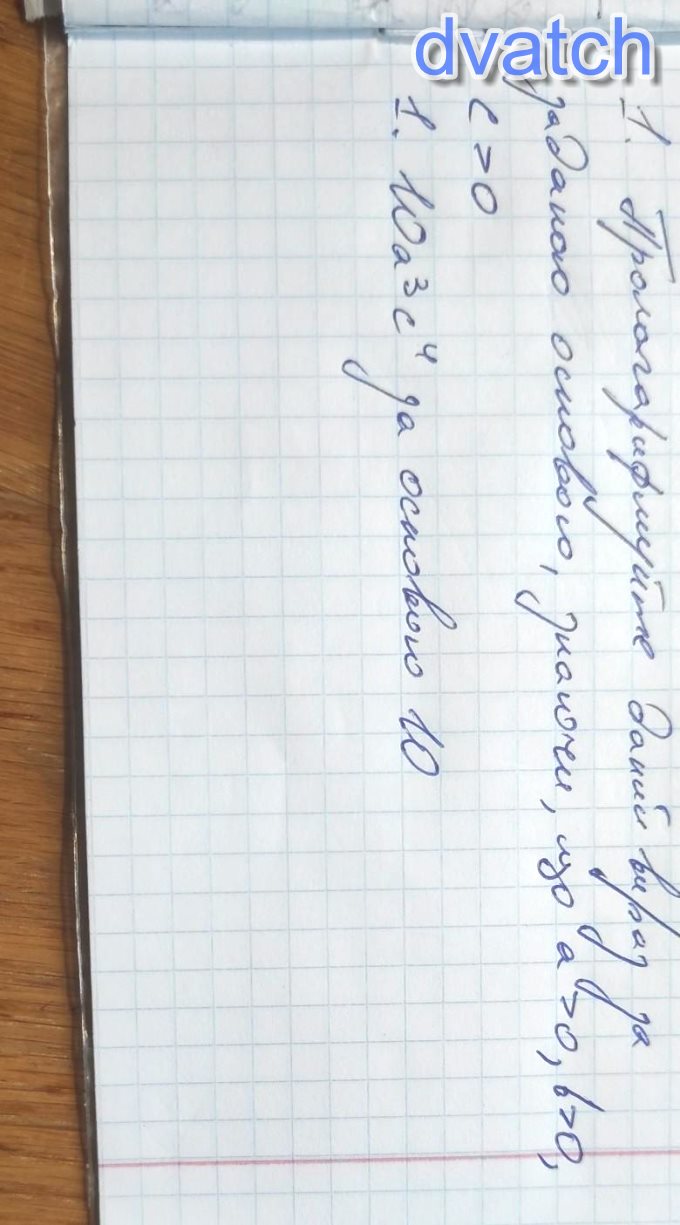 dvatch
1. Прологарифмуйте даний вираз за
заданою основою, знаючи, що a>0, b>0,
c>0
1. 10a³c⁴ за основою 10